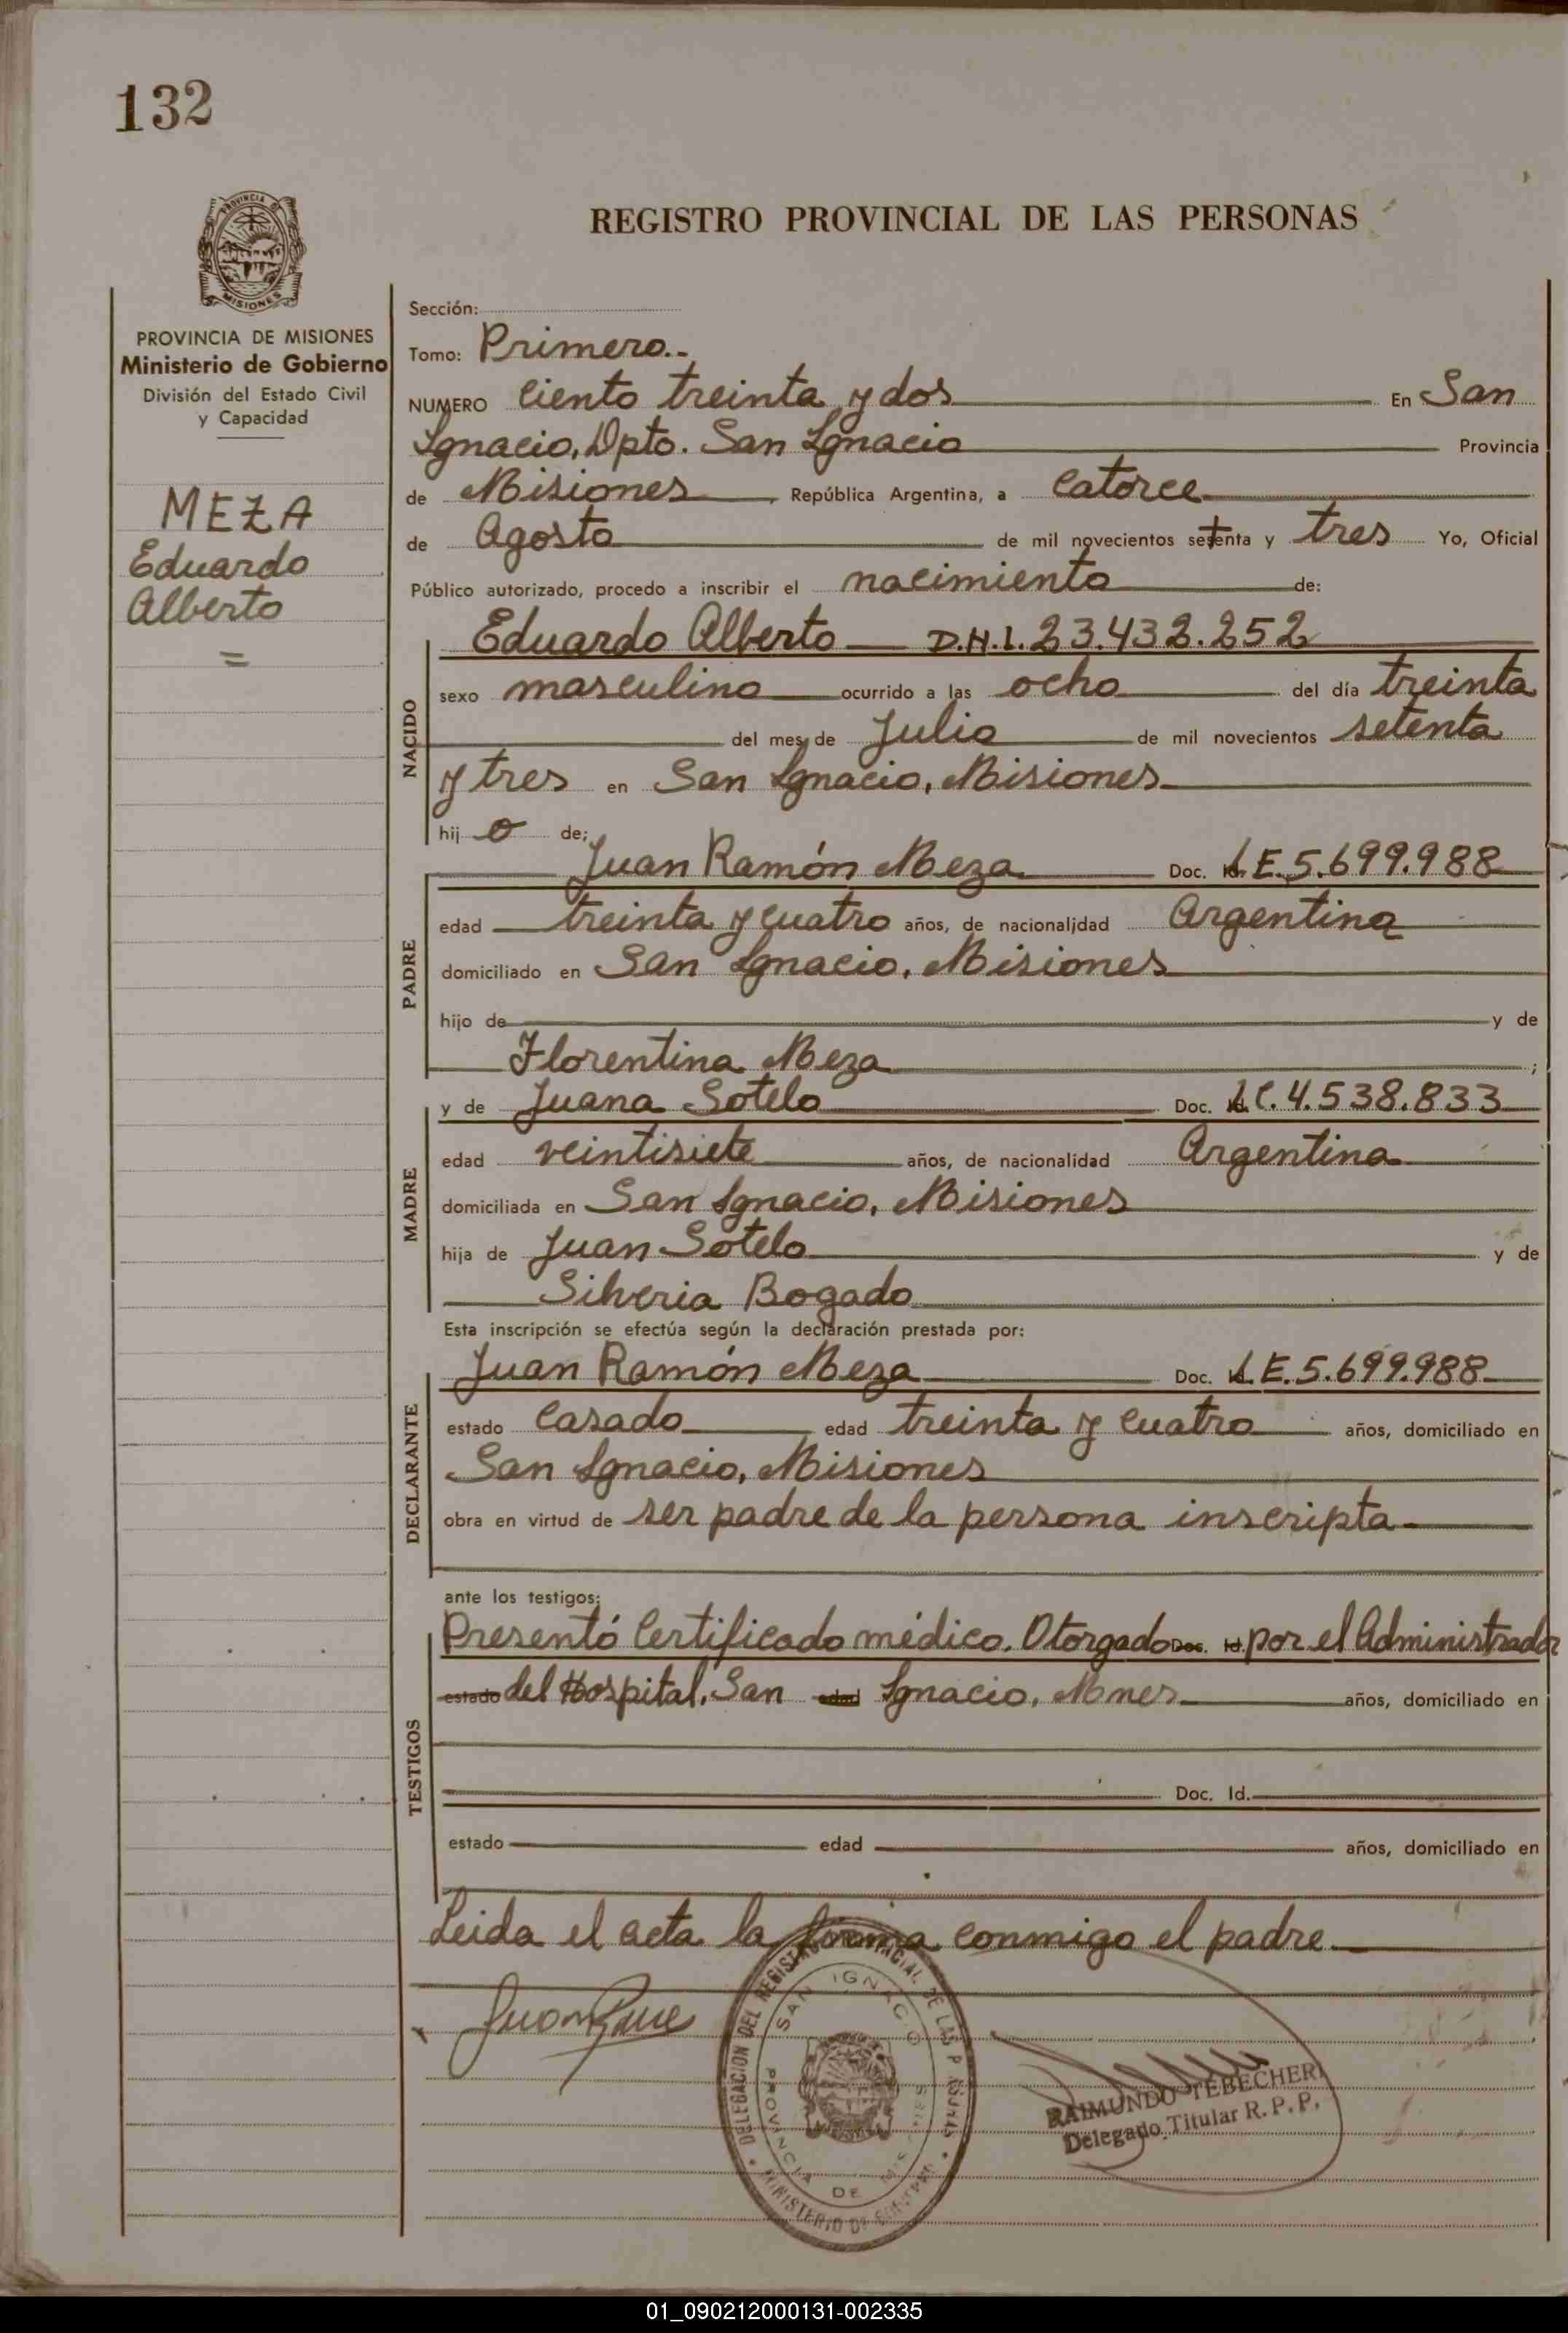 132
PROVINCIA
MISIONES
REGISTRO PROVINCIAL DE LAS PERSONAS
PROVINCIA DE MISIONES
Ministerio de Gobierno
División del Estado Civil
y Capacidad
MEZA
Eduardo
Alberto
=
Sección:
Tomo: Primero.-
NUMERO Ciento treinta y dos En San
Ignacio, Dpto. San Ignacio Provincia
de Misiones, República Argentina, a Catorce
de Agosto de mil novecientos setenta y tres Yo, Oficial
Público autorizado, procedo a inscribir el nacimiento de:
NACIDO
Eduardo Alberto D.N.I. 23.432.252
sexo masculino ocurrido a las ocho del día treinta
del mes de Julio de mil novecientos setenta
y tres en San Ignacio, Misiones
hij o de:
PADRE
Juan Ramón Meza Doc. L.E. 5.699.988
edad treinta y cuatro años, de nacionalidad Argentina
domiciliado en San Ignacio, Misiones
hijo de y de
Florentina Meza ;
MADRE
y de Juana Sotelo Doc. L.C. 4.538.833
edad veintisiete años, de nacionalidad Argentina
domiciliada en San Ignacio, Misiones
hija de Juan Sotelo y de
Silveria Bogado
Esta inscripción se efectúa según la declaración prestada por:
DECLARANTE
Juan Ramón Meza Doc. L.E. 5.699.988
estado Casado edad treinta y cuatro años, domiciliado en
San Ignacio, Misiones
obra en virtud de ser padre de la persona inscripta
ante los testigos:
TESTIGOS
Presentó Certificado médico. Otorgado Doc. Id. por el Administrador
estado del Hospital, San edad Ignacio, Mnes años, domiciliado en
Doc. Id.
estado edad años, domiciliado en
Leida el acta la firma conmigo el padre
DELEGACION DEL REGISTRO PROVINCIAL DE LAS PERSONAS
SAN IGNACIO
PROVINCIA DE MISIONES
MINISTERIO DE GOBIERNO
RAIMUNDO TEBECHERI
Delegado Titular R.P.P.
01_090212000131-002335